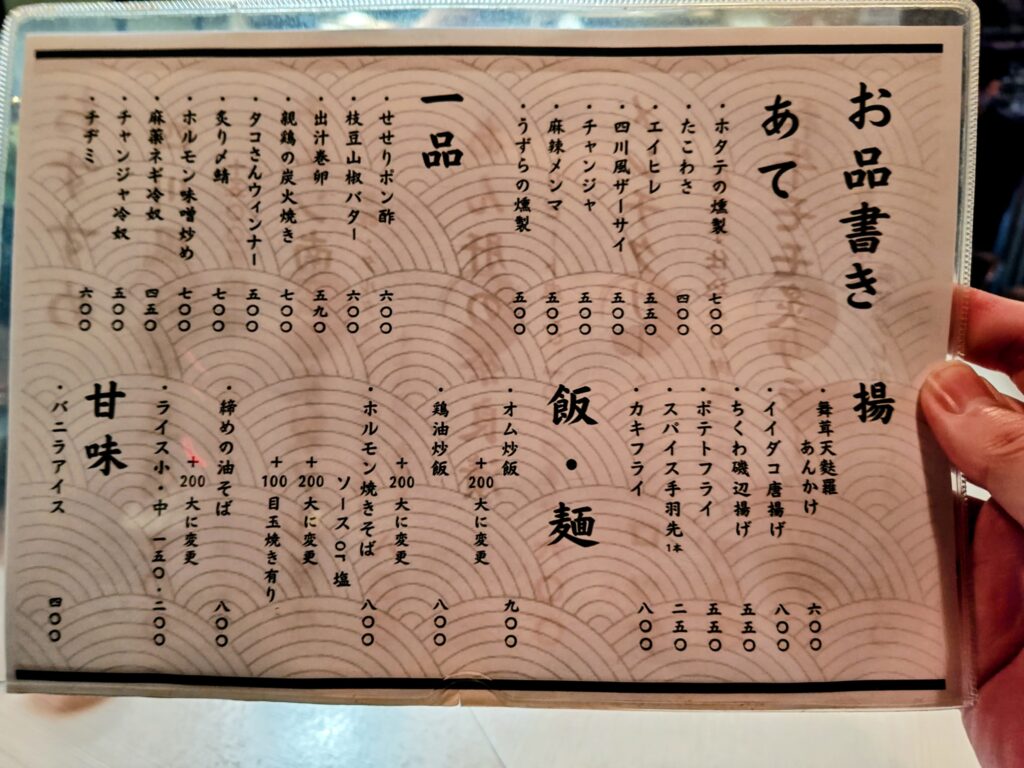 お品書き
あて
・ホタテの燻製 七〇〇
・たこわさ 四〇〇
・エイヒレ 五五〇
・四川風ザーサイ 五〇〇
・チャンジャ 五〇〇
・麻辣メンマ 五〇〇
・うずらの燻製 五〇〇
一品
・せせりポン酢 六〇〇
・枝豆山椒バター 六〇〇
・出汁巻卵 五九〇
・親鶏の炭火焼き 七〇〇
・タコさんウィンナー 五〇〇
・炙り〆鯖 七〇〇
・ホルモン味噌炒め 七〇〇
・麻薬ネギ冷奴 四五〇
・チャンジャ冷奴 五〇〇
・チヂミ 六〇〇
揚
・舞茸天麩羅
あんかけ 六〇〇
・イイダコ唐揚げ 八〇〇
・ちくわ磯辺揚げ 五五〇
・ポテトフライ 五五〇
・スパイス手羽先 1本 二五〇
・カキフライ 八〇〇
飯・麺
・オム炒飯 九〇〇
+200 大に変更
・鶏油炒飯 八〇〇
+200 大に変更
・ホルモン焼きそば 八〇〇
ソース or 塩
+200 大に変更
+100 目玉焼き有り
・締めの油そば 八〇〇
+200 大に変更
・ライス小・中 一五〇・二〇〇
甘味
・バニラアイス 四〇〇